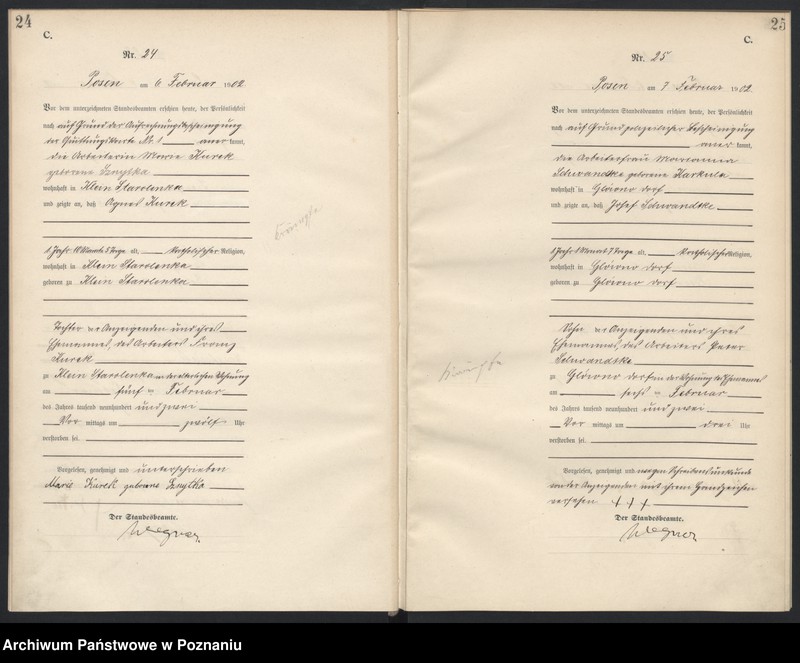 24
C.
Nr. 24
Posen am 6 Februar 1902
Vor dem unterzeichneten Standesbeamten erschien heute, der Persönlichkeit
nach auf Grund der Aufrechnungsbescheinigung
der Quittungskarte Nr. aner kannt,
die Arbeiterin Marie Kurek
geborene
wohnhaft in Klein Starolenka
und zeigte an, daß Agnes Kurek
1 Jahr 10 Monate 5 Tage alt, katholischer Religion,
wohnhaft in Klein Starolenka
geboren zu Klein Starolenka
Tochter der Anzeigenden und ihres
Ehemannes, des Arbeiters Franz
Kurek
zu Klein Starolenka in der elterlichen Wohnung
am fünf ten Februar
des Jahres tausend neunhundert und zwei
Vor mittags um zwölf Uhr
verstorben sei.
Vorgelesen, genehmigt und unterschrieben
Marie Kurek geborene
Der Standesbeamte.
Wegner
25
C.
Nr. 25
Posen am 7 Februar 1902.
Vor dem unterzeichneten Standesbeamten erschien heute, der Persönlichkeit
nach auf Grund polizeilicher Bescheinigung
aner kannt,
die Arbeiterfrau Marianna
Schwandtke geborene Karkula
wohnhaft in Glowno dorf
und zeigte an, daß Josef Schwandtke
1 Jahr 1 Monat 7 Tage alt, katholischer Religion,
wohnhaft in Glowno dorf
geboren zu Glowno dorf
Sohn der Anzeigenden und ihres
Ehemannes, des Arbeiters Peter
Schwandtke
zu Glowno dorf in der Wohnung der Eheleute
am sechs ten Februar
des Jahres tausend neunhundert und zwei
Vor mittags um drei Uhr
verstorben sei.
Vorgelesen, genehmigt und wegen Schreibensunkunde
von der Anzeigenden mit ihrem Handzeichen
versehen + + +
Der Standesbeamte.
Wegner
Archiwum Państwowe w Poznaniu